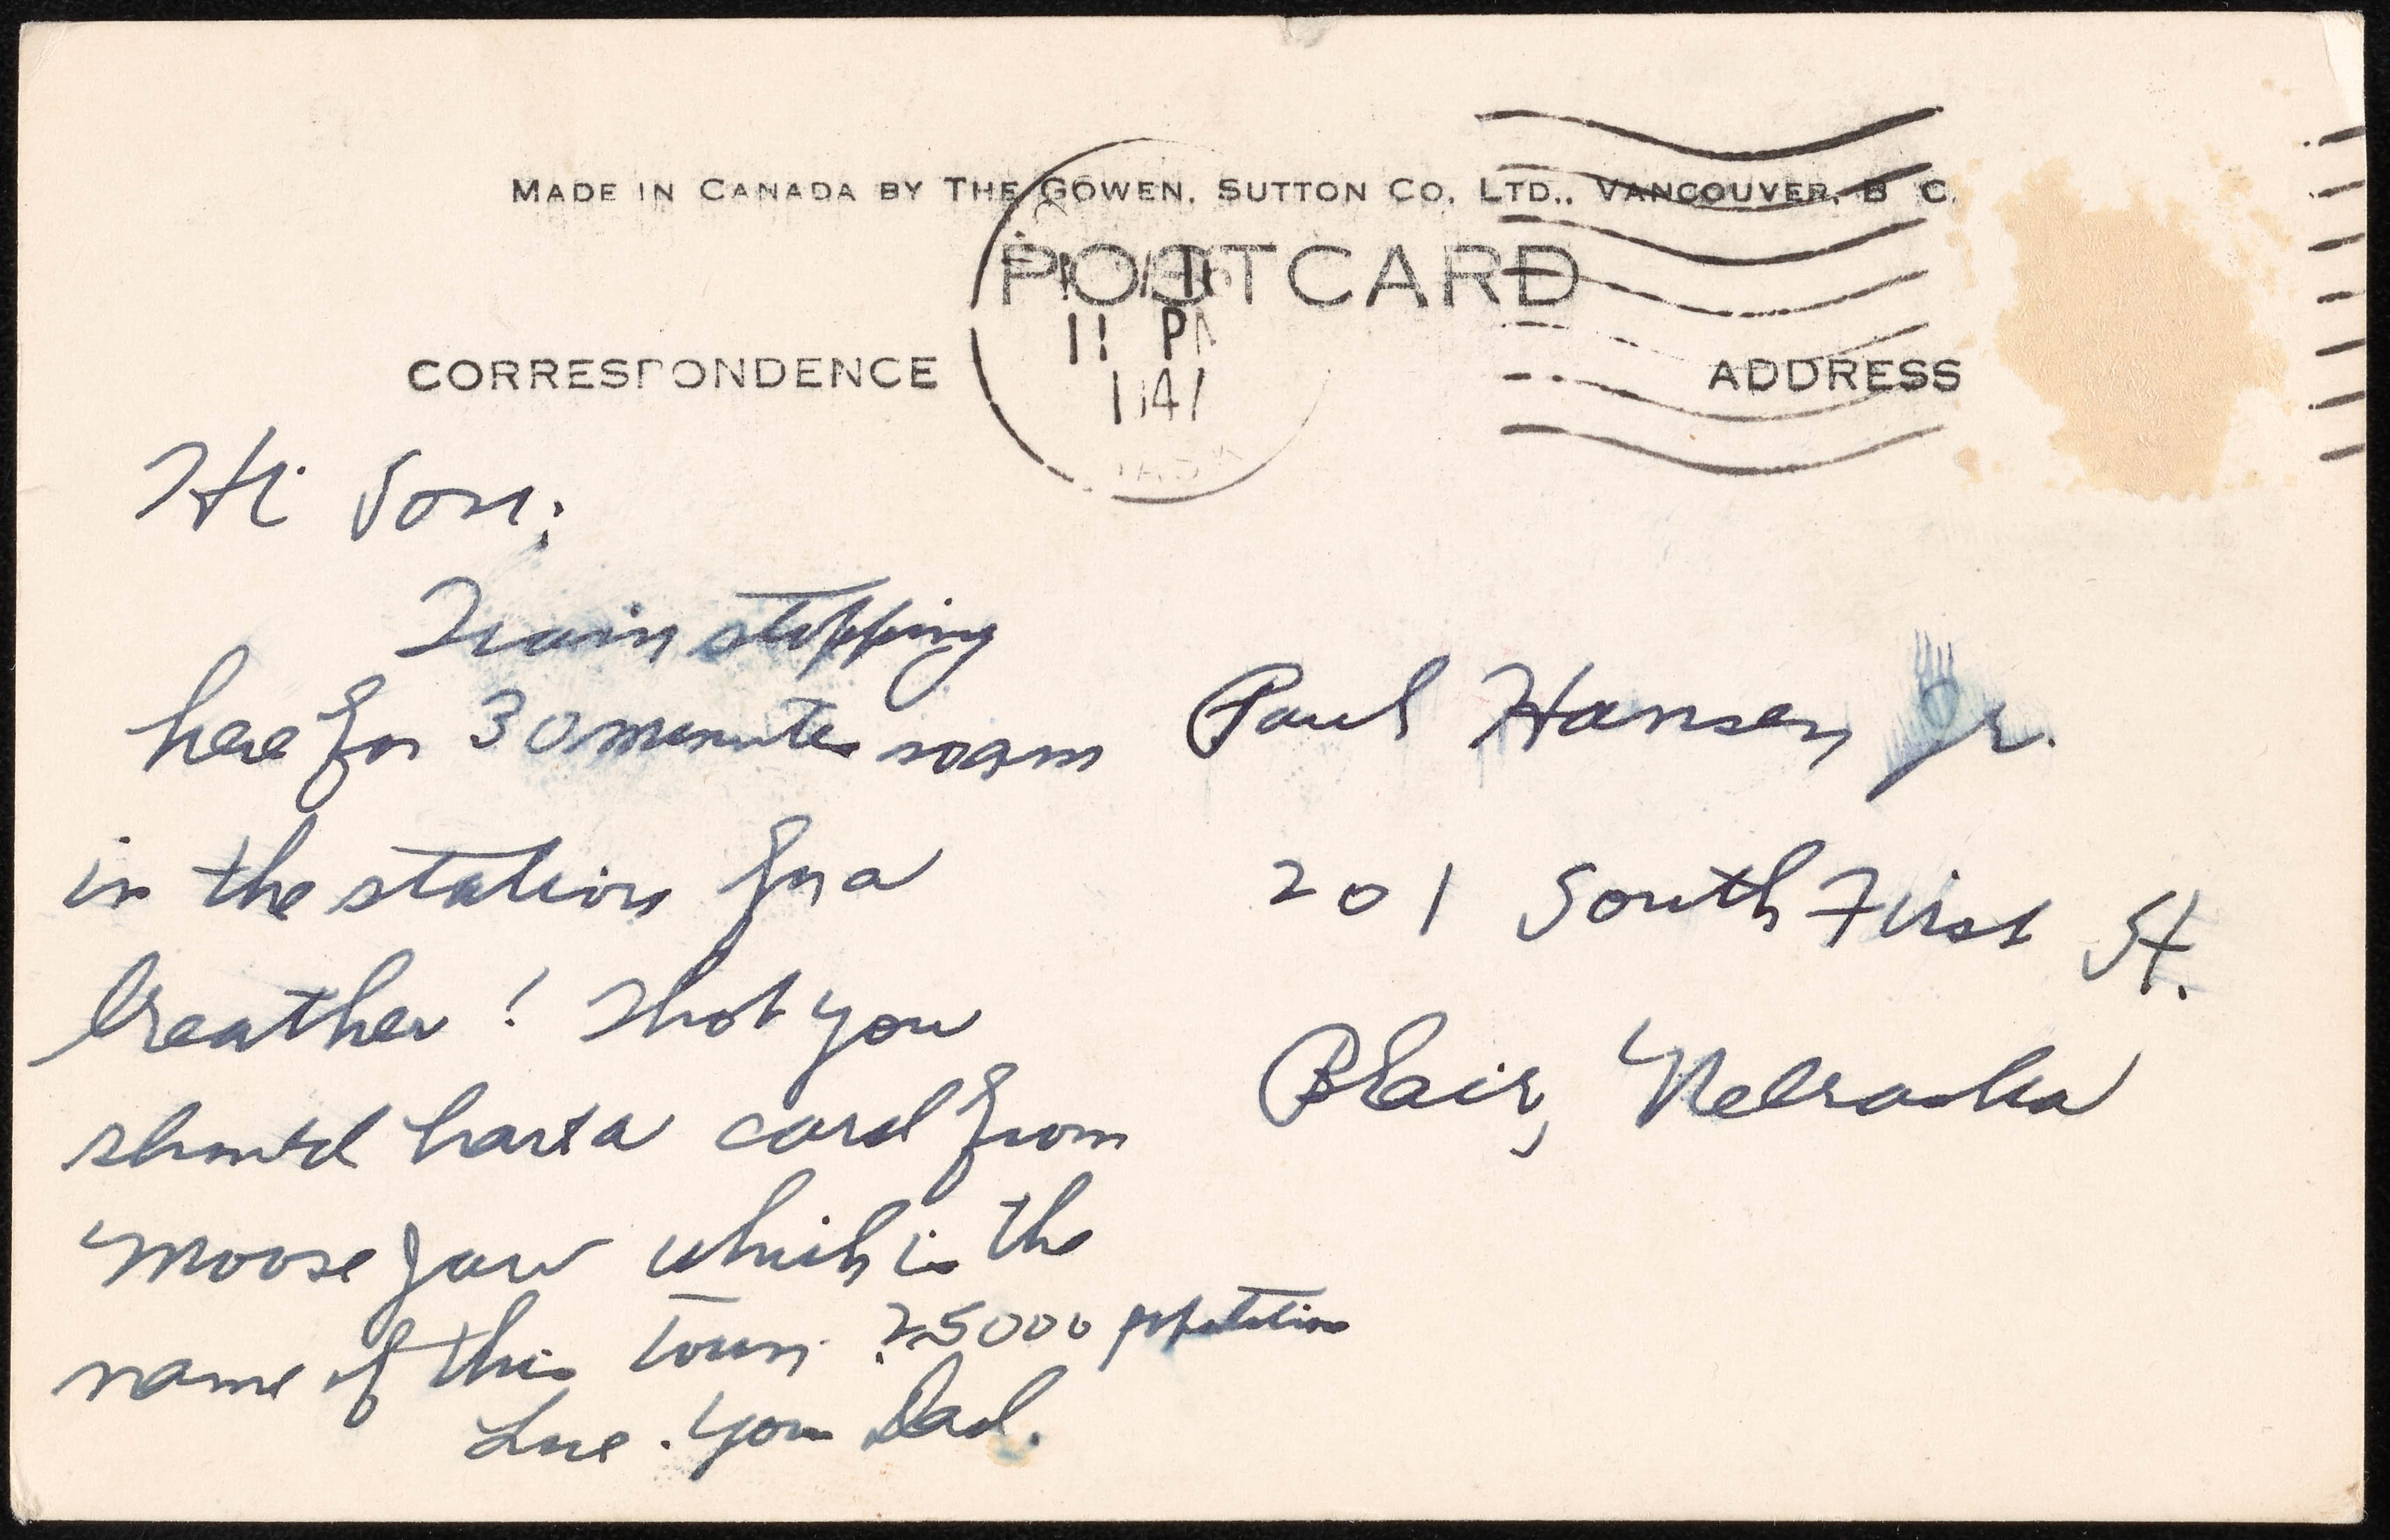 MADE IN CANADA BY THE GOWEN, SUTTON CO, LTD., VANCOUVER, B C.
POSTCARD
11 PM
CORRESPONDENCE
ADDRESS
Hi Son;
Train stopping
here for 30 minutes
in the station for a
breather! Thot you
should have a card from
Moose Jaw which is the
name of this town. 25000 population
Love. Your Dad.
Paul Hansen Jr.
201 South First St.
Blair, Nebraska